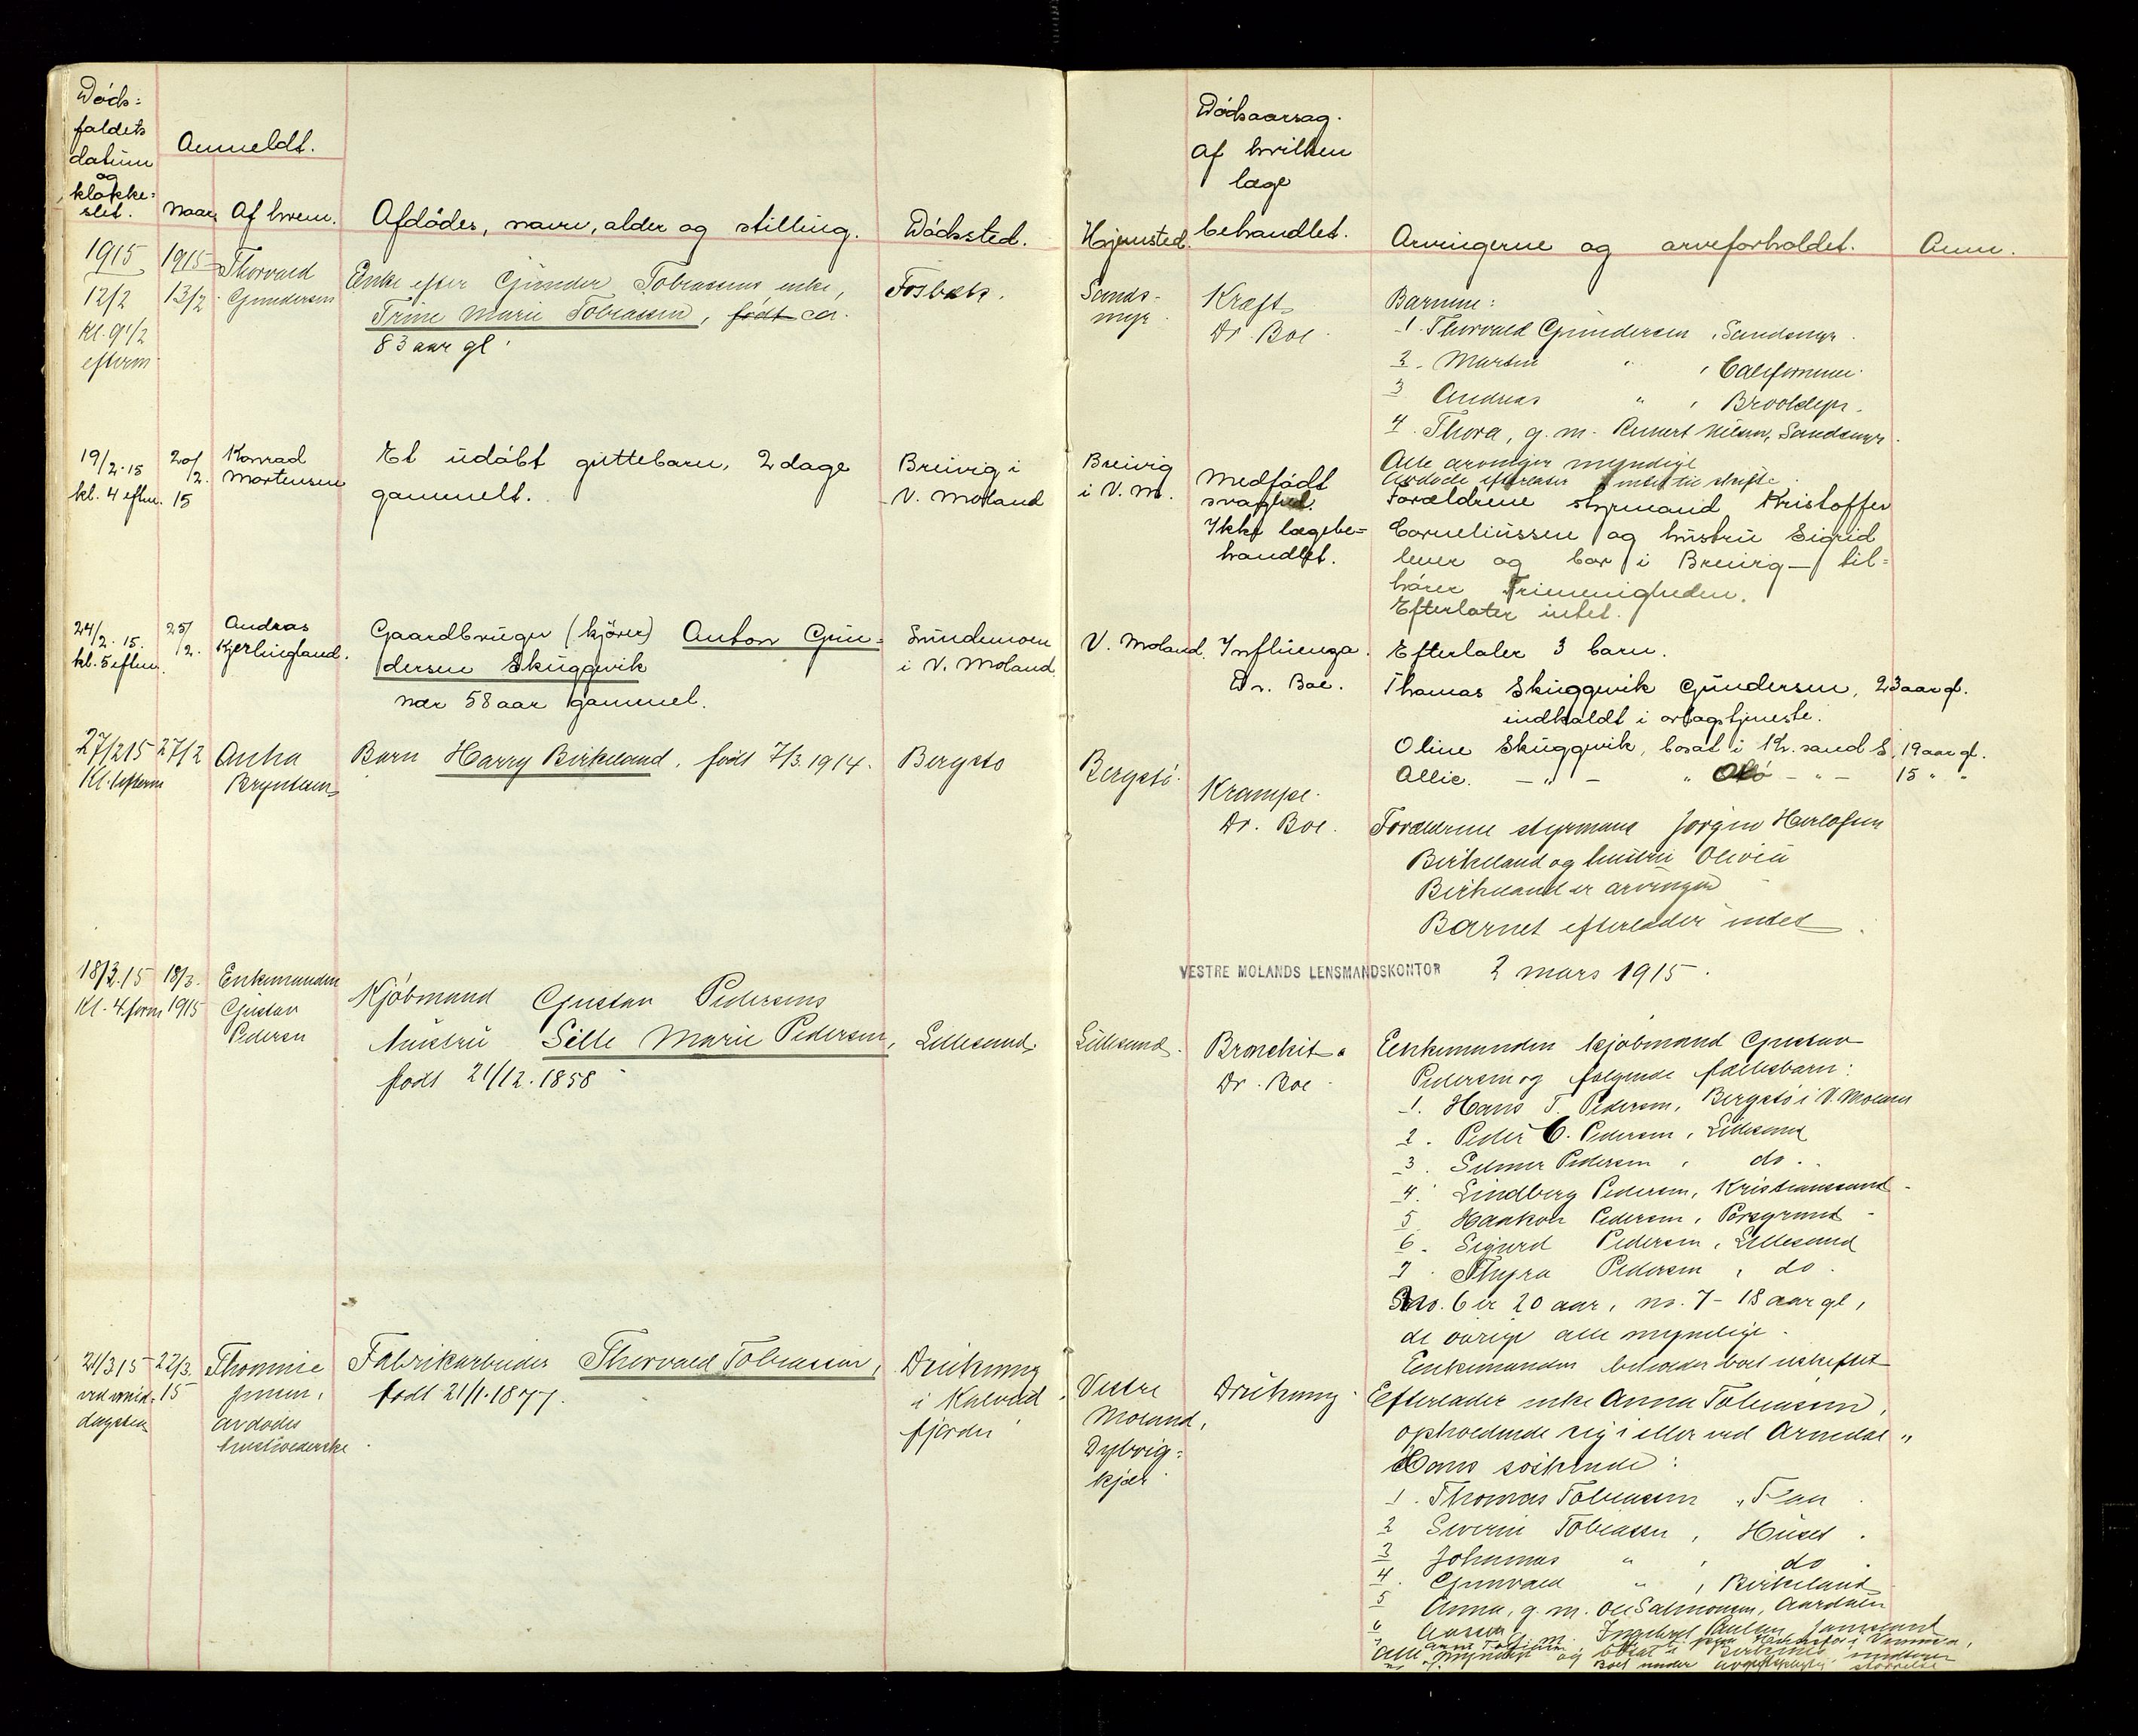 Døds-
faldets
datum
og
klokke-
slet.
Anmeldt.
Naar. Af hvem.
Afdødes, navn, alder og stilling.
Dødssted.
Hjemsted.
Dødsaarsag.
Af hvilken
læge
behandlet.
Arvingerne og arveforholdet.
Anm.
1915
12/2
Kl. 9 1/2
efterm
1915
13/2
Thorvald
Gundersen
Enke efter Gunder Tobiassens enke,
Trine Marie Tobiassen, født ca.
83 aar gl.
Fosbæk.
Sands-
myr
Kræft
Dr. Boe
Barnene:
1. Thorvald Gundersen, Sandsmyr.
2. Martin " , Californien.
3 Andreas " , Brooklyn.
4. Thora, g. m. Reinert Nilsen, Sandsmyr.
Alle arvinger myndige
Avdøde efterlader intet til skifte.
19/2.15
kl. 4 eftm.
20/2.
15
Konrad
Mortensen
Et udøbt guttebarn, 2 dage
gammelt.
Breivig i
V. Moland
Breivig
i V. M.
Medfødt
svaghed.
Ikke lægebe-
handlet.
Forældrene styrmand Kristoffer
Corneliussen og hustru Sigrid
lever og bor i Breivig — til-
hører Frimenigheden.
Efterlater intet.
24/2.15.
kl. 5 eftm.
25/2.
Andreas
Kjerlingland.
Gaardbruger (kjører) Anton Gun-
dersen Skuggevik
nær 58 aar gammel.
Sundemoen
i V. Moland
V. Moland.
Influenza.
Dr. Boe.
Efterlater 3 barn.
Thomas Skuggevik Gundersen, 23 aar gl.
indkaldt i orlogstjeneste.
Oline Skuggevik, bosat i Kr.sand S, 19 aar gl.
Allie. — " — " — " — 15 " "
27/2 15
Kl. 1 efterm
27/2
Barn Harry Birkeland, født 7/3. 1914.
Bergstø
Bergstø.
Krampe.
Dr. Boe.
Forældrene styrmand Jørgen Herlofsen
Birkeland og hustru Olivia
Birkeland er arvinger
Barnet efterlader intet.
VESTRE MOLANDS LENSMANDSKONTOR 2 mars 1915.
18/3.15
Kl. 4 form
18/3.
1915
Enkemanden
Gustav
Pedersen
Kjøbmand Gustav Pedersens
hustru Sille Marie Pedersen,
født 21/12. 1858
Lillesand.
Lillesand.
Bronchit.
Dr. Boe
Enkemanden kjøbmand Gustav
Pedersen og følgende fællesbarn:
1. Hans T. Pedersen, Bergstø i V. Moland
2. Peder C. Pedersen, Lillesand
3. Selmer Pedersen, do.
4. Lindberg Pedersen, Kristianssand
5. Haakon Pedersen, Porsgrund
6. Sigurd Pedersen, Lillesand
7. Thyra Pedersen, do.
No. 6 er 20 aar, no. 7 - 18 aar gl,
de øvrige alle myndige.
Enkemanden beholder boet uskiftet
21/3 15
ved mid-
dagstid
22/3.
15
Thomine
Jensen,
avdødes
husholderske.
Fabrikarbeider Thorvald Tobiassen,
født 21/1. 1877.
Drukning
i Kalvold
fjorden
Vestre
Moland,
Dybvig-
kjær
Drukning.
Efterlader enke Anna Tobiassen,
opholdende sig i eller ved Arendal
Hans søskende:
1. Thomas Tobiassen,
2 Severin Tobiassen, Huset.
3 Johannes " , do
4. Gunvald " , Birkeland
5 Anna, g. m. Ole Salmonsen,
6
Alle myndige